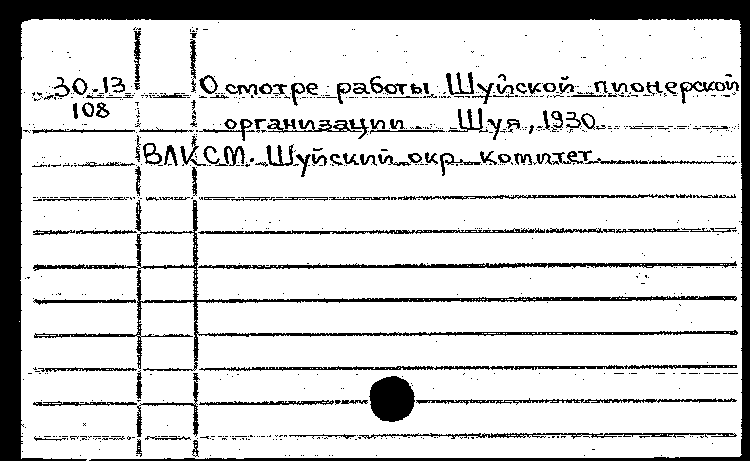 30-13 О смотре работы Шуйской пионерской
108 организации. Шуя, 1930.
ВЛКСМ. Шуйский окр. комитет.